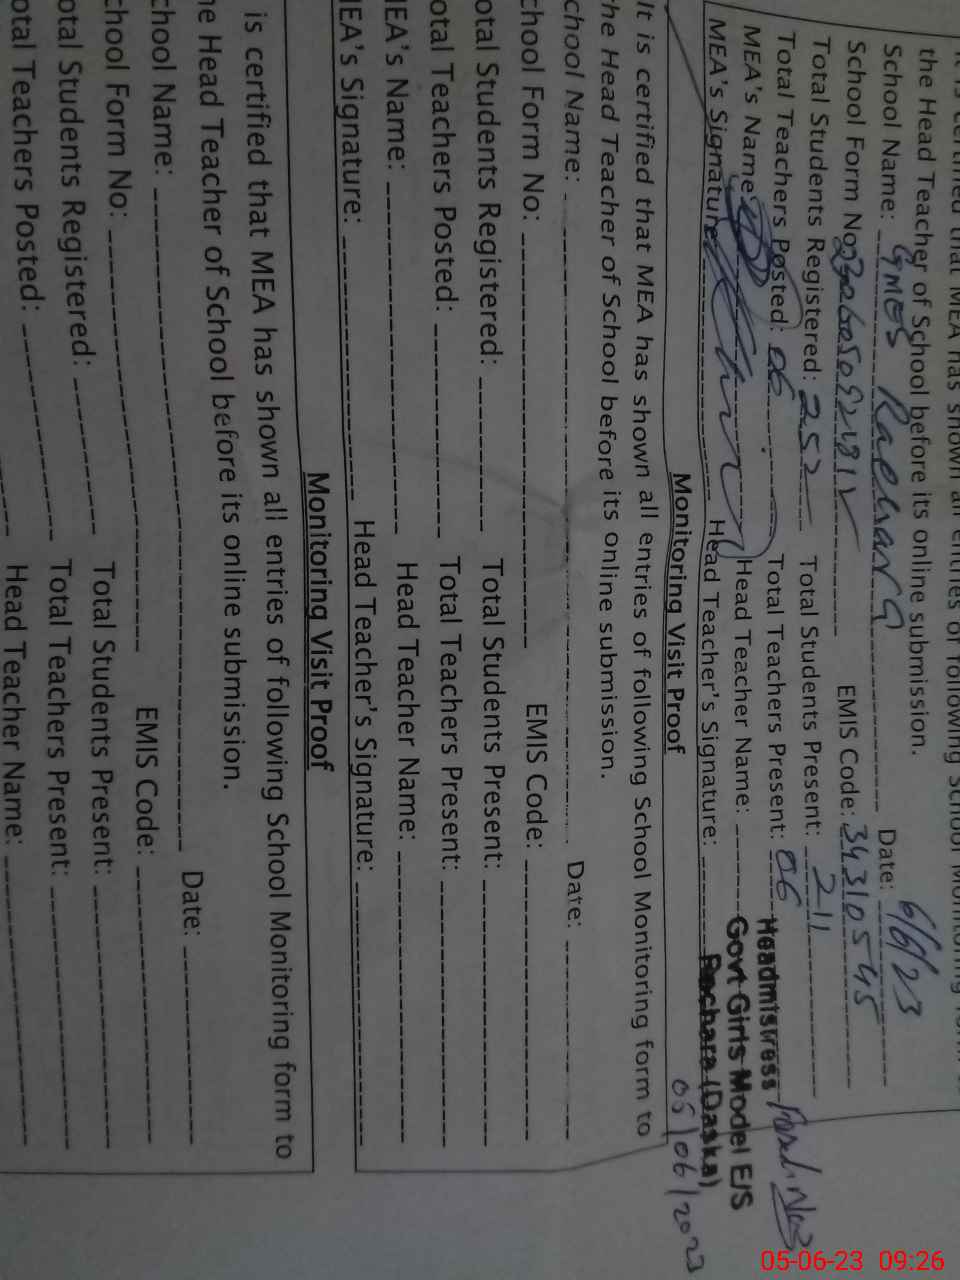 It is certified that MEA has shown all entries of following School Monitoring form to
the Head Teacher of School before its online submission.
School Name: GMES Date: 6/6/23
School Form No: EMIS Code: 34310545
Total Students Registered: 252 Total Students Present: 211
Total Teachers Posted: 06 Total Teachers Present: 06
MEA's Name: Head Teacher Name:
MEA's Signature: Head Teacher's Signature:
Headmistress
Govt Girls Model E/S
(Daska)
05/06/2023
Monitoring Visit Proof
It is certified that MEA has shown all entries of following School Monitoring form to
the Head Teacher of School before its online submission.
chool Name: Date:
chool Form No: EMIS Code:
otal Students Registered: Total Students Present:
otal Teachers Posted: Total Teachers Present:
IEA's Name: Head Teacher Name:
IEA's Signature: Head Teacher's Signature:
Monitoring Visit Proof
is certified that MEA has shown all entries of following School Monitoring form to
he Head Teacher of School before its online submission.
chool Name: Date:
chool Form No: EMIS Code:
otal Students Registered: Total Students Present:
otal Teachers Posted: Total Teachers Present:
Head Teacher Name:
05-06-23 09:26